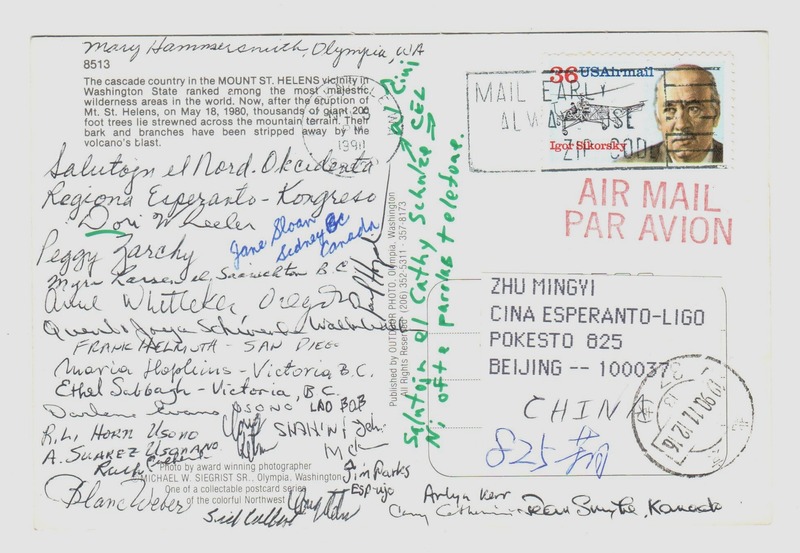 Mary Hammersmith, Olympia, WA
8513
The cascade country in the MOUNT ST. HELENS vicinity in
Washington State ranked among the most majestic
wilderness areas in the world. Now, after the eruption of
Mt. St. Helens, on May 18, 1980, thousands of giant 200
foot trees lie strewn across the mountain terrain. Their
bark and branches have been stripped away by the
volcano's blast.
Salutojn el Nord. Okcidenta
Regiona Esperanto-Kongreso
Dori Wheeler
Peggy Zarchy
Jane Sloan
Sidney BC
Canada
el Saanichton B.C.
Anne Whitteker Oregon
FRANK HELMUTH - SAN DIEGO
Maria Hopkins - Victoria, B.C.
Ethel Sabbagh - Victoria, B.C.
Darlene Evans, USONO
LAO BOB
R.LI HORN USONO
A. SUAREZ USONANO
Photo by award winning photographer
MICHAEL W. SIEGRIST SR., Olympia, Washington
One of a collectable postcard series
of the colorful Northwest
Jim Parks
ESP-ujo
Blanc Weber
Sid Culbert
Published by OUTDOOR PHOTO, Olympia, Washington
All Rights Reserved (206) 352-5311 - 357-8173
Salutojn el Cathy Schulze CEL
Ni ofte parolas telefone.
36 USAirmail
Igor Sikorsky
MAIL EARLY
ALWAYS USE
ZIP CODE
AIR MAIL
PAR AVION
ZHU MINGYI
CINA ESPERANTO-LIGO
POKESTO 825
BEIJING -- 100037
CHINA
825
Arlyn Kerr
Jean Smythe, Kanado